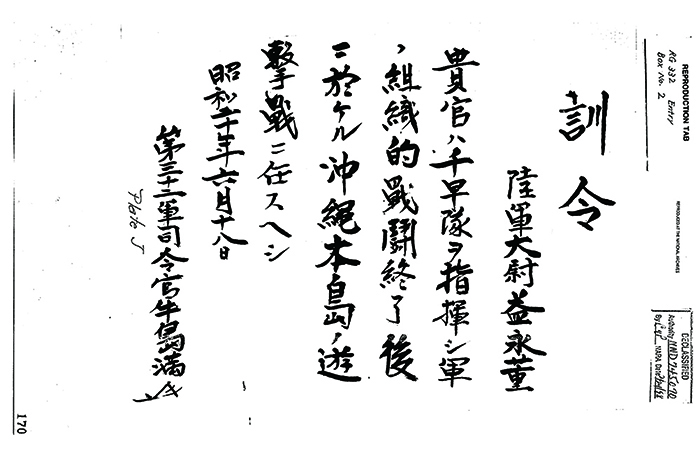 訓令
陸軍大尉益永董
貴官ハ千早隊ヲ指揮シ軍
ノ組織的戰鬪終了後
ニ於ケル沖縄本島ノ遊
撃戰ニ任スヘシ
昭和二十年六月十八日
第三十二軍司令官牛島満
Plate J
170
REPRODUCTION TAB
RG 332 Entry
Box No. 2
REPRODUCED AT THE NATIONAL ARCHIVES
DECLASSIFIED
Authority NND 745070
By NARA Date